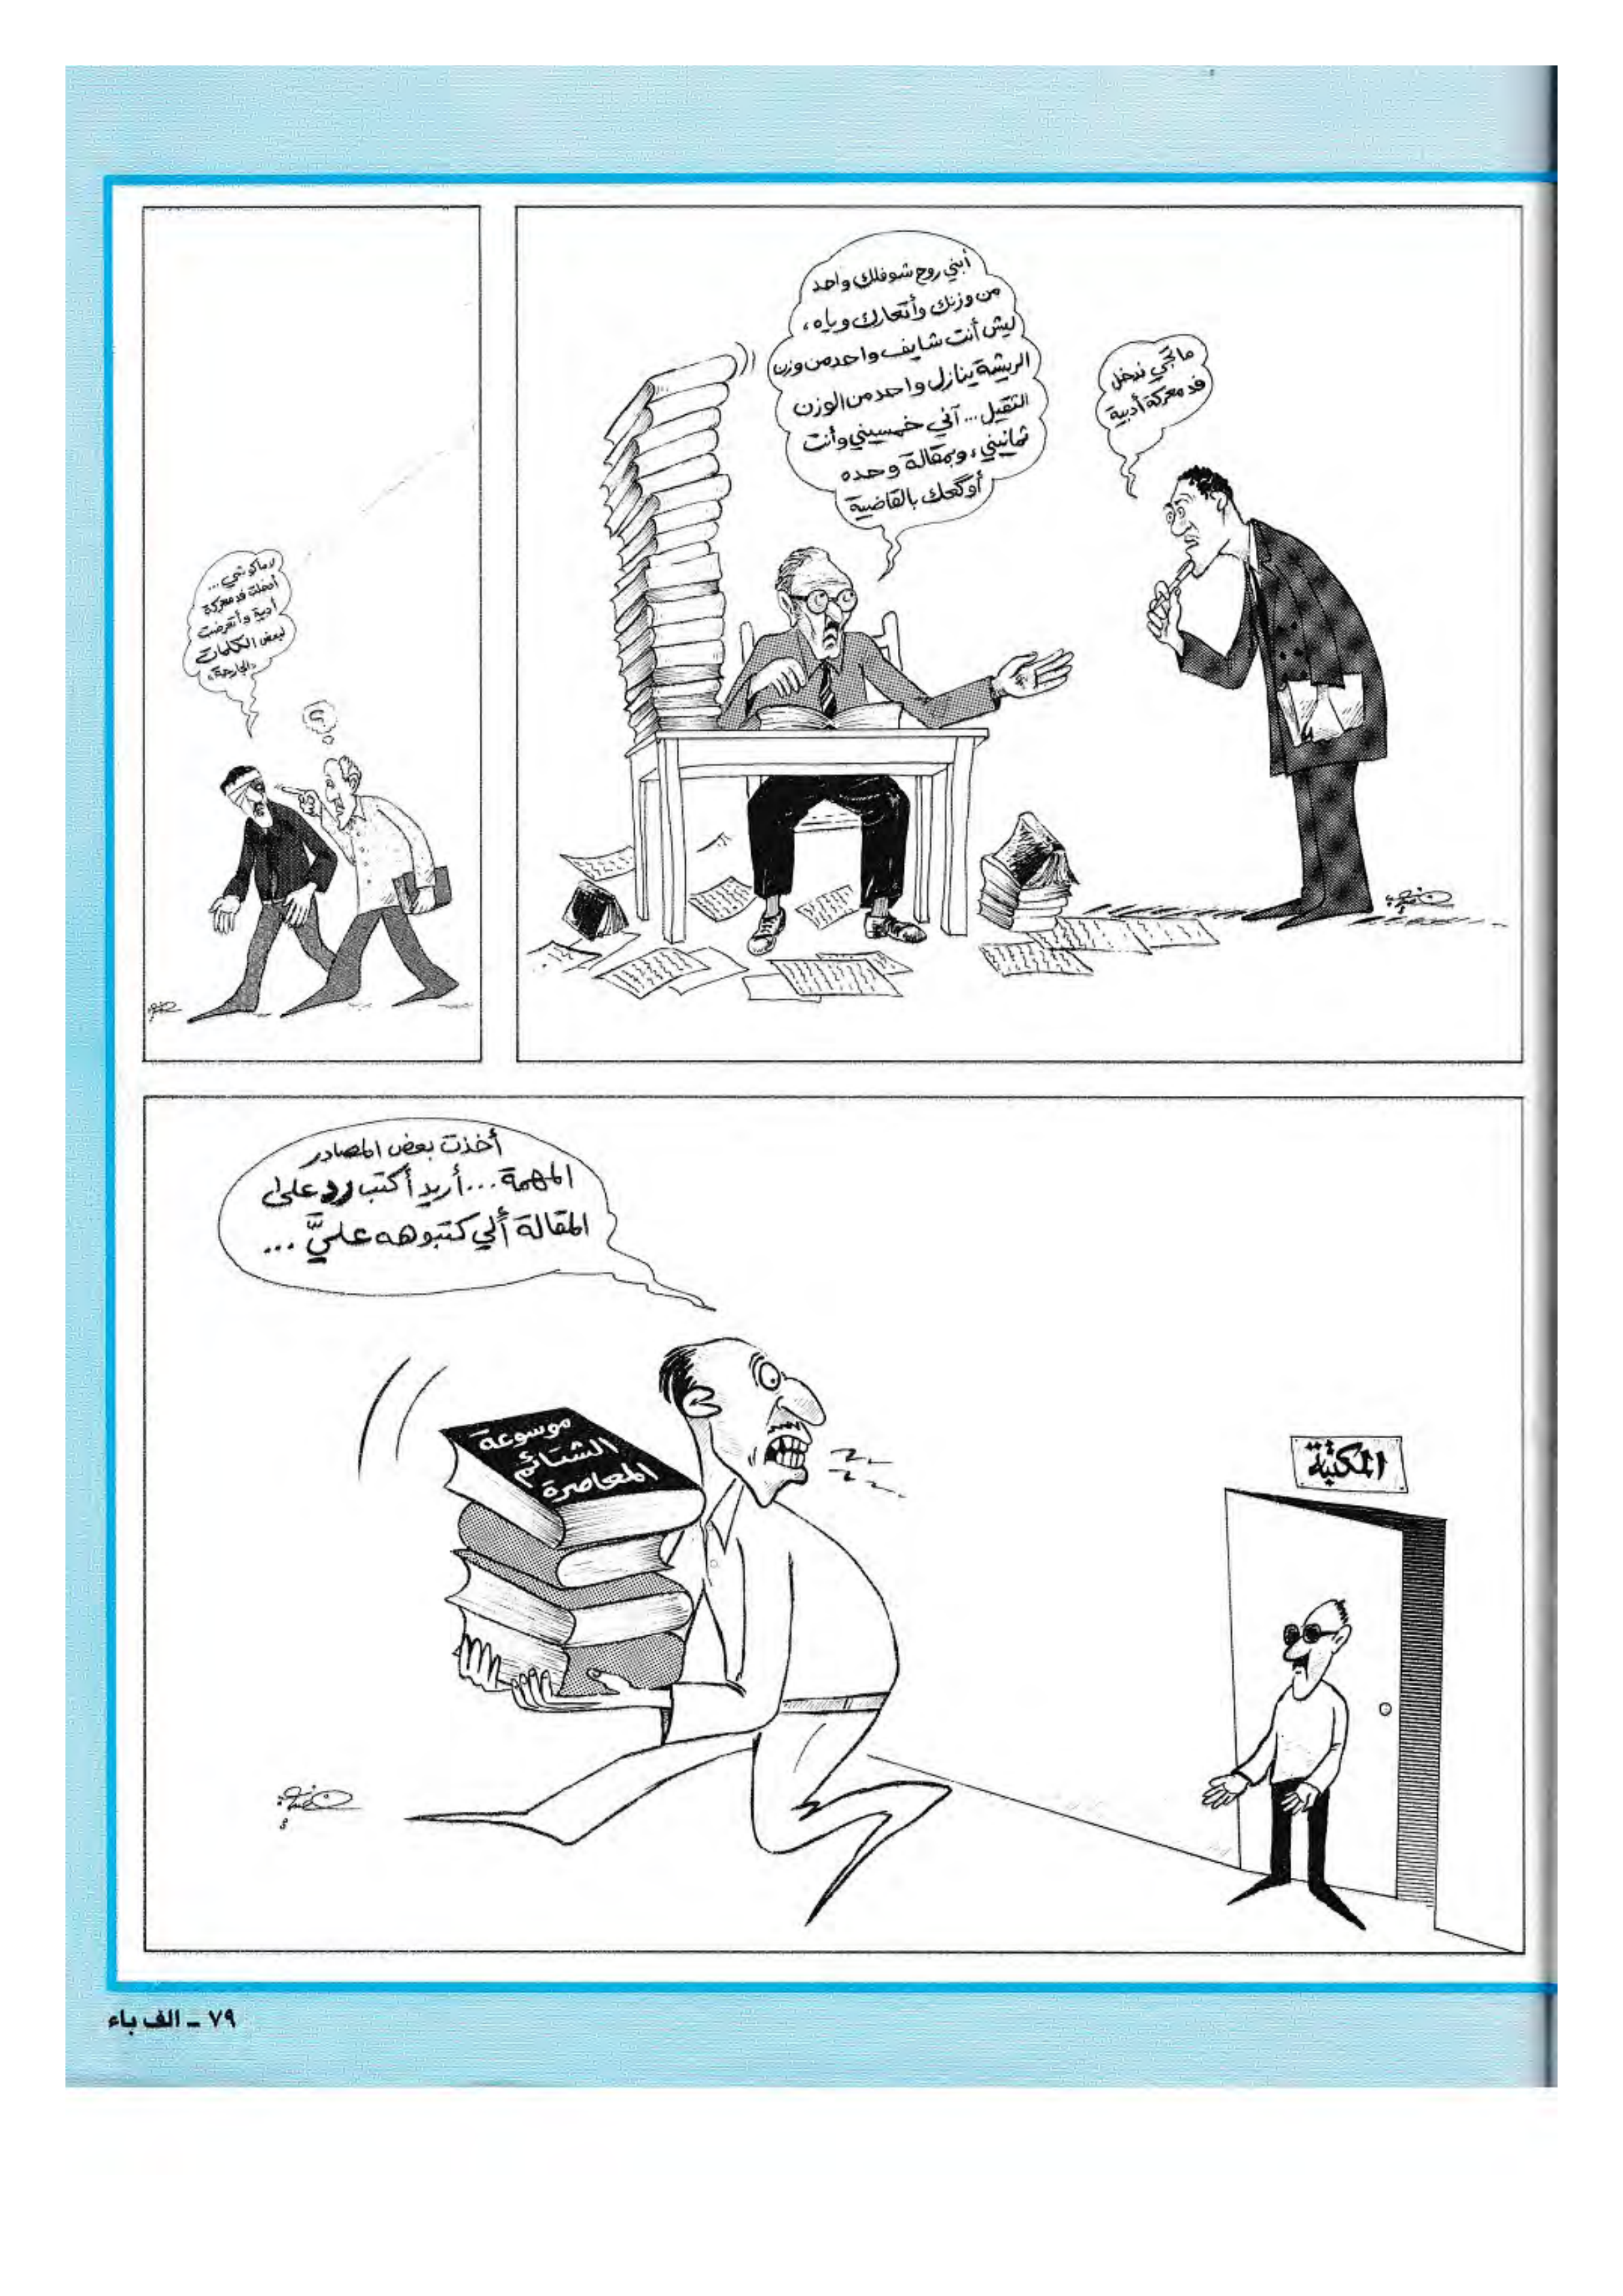 ما تجي ندخل
فد معركة أدبية
أبني روح شوفلك واحد
من وزنك وأتعارك وياه،
ليش أنت شايف واحد من وزن
الريشة ينازل واحد من الوزن
الثقيل... آني خمسيني وأنت
ثمانيني، وبمقالة وحده
أوگعك بالقاضية
لا ماكو شي...
أدخلت فد معركة
أدبية وأتعرضت
لبعض الكلمات
«الجارحة»
؟
أخذت بعض المصادر
المهمة... أريد أكتب رد على
المقالة ألي كتبوهه عليَّ...
موسوعة
الشتائم
المعاصرة
المكتبة
٧٩ - الف باء